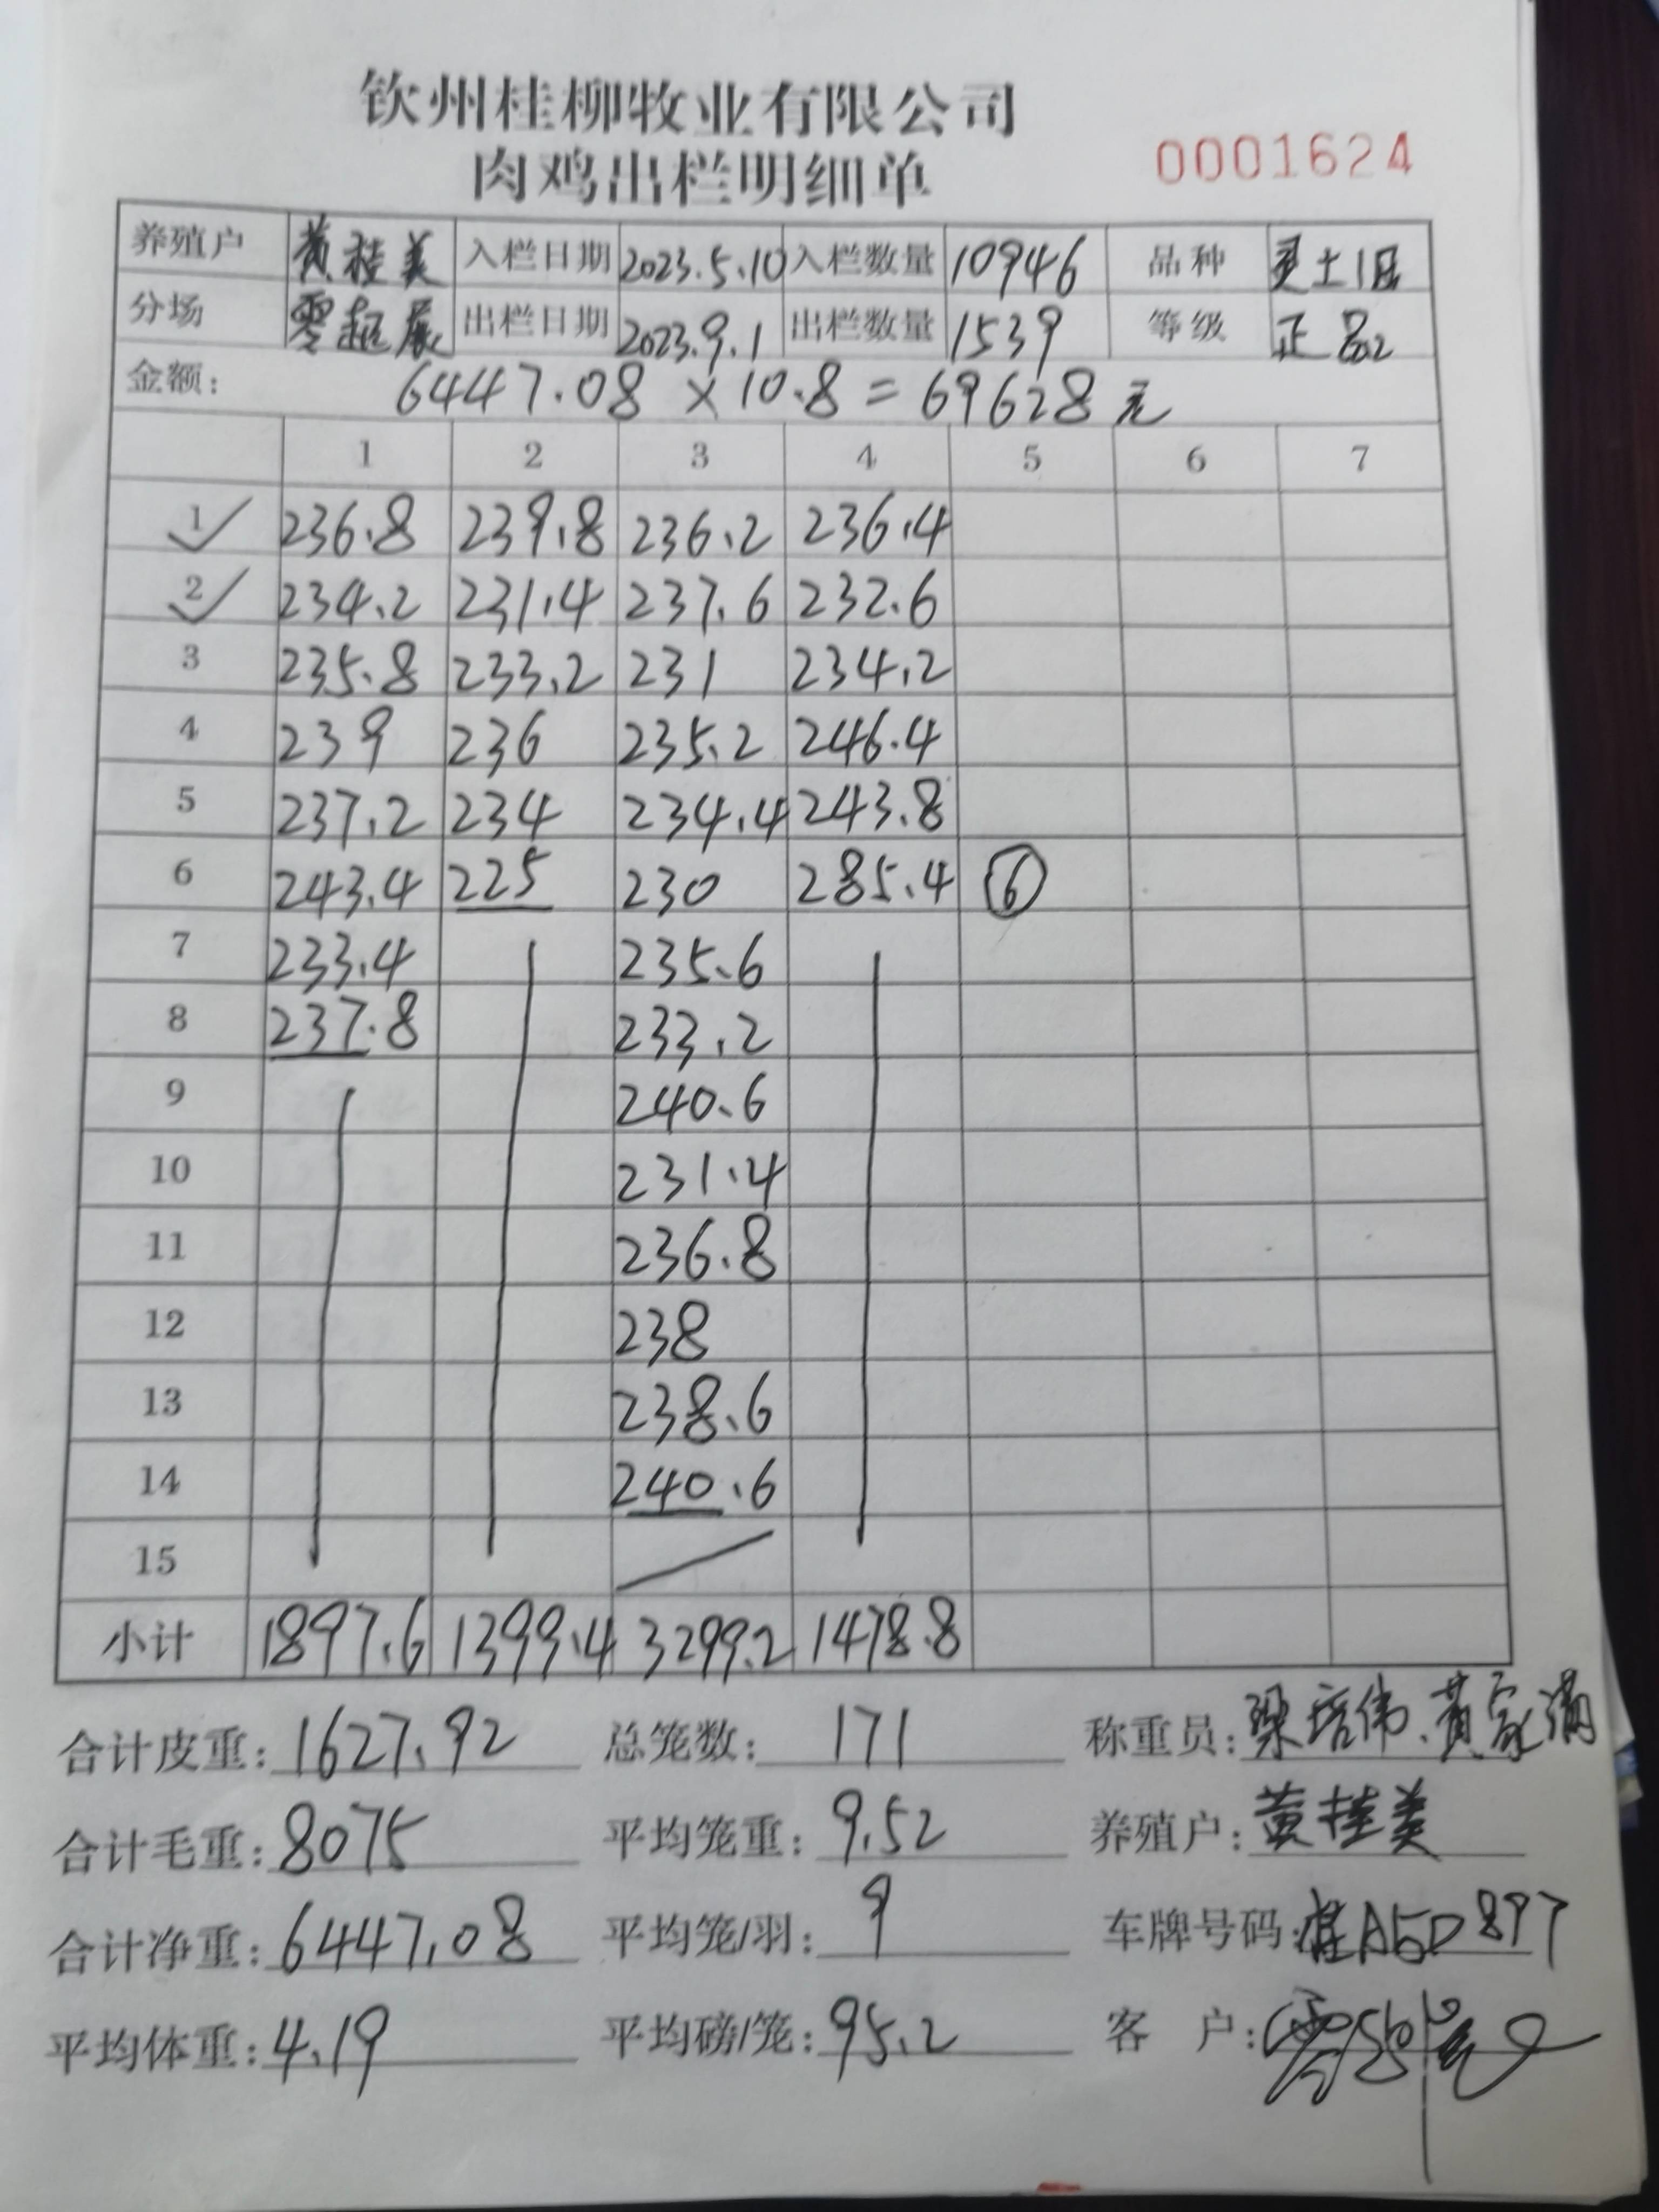 钦州桂柳牧业有限公司
肉鸡出栏明细单
0001624
养殖户 黄桂美 入栏日期 2023.5.10 入栏数量 10946 品种 灵土1母
分场 零超展 出栏日期 2023.9.1 出栏数量 1539 等级 正品2
金额: 6447.08 × 10.8 = 69628元
1 2 3 4 5 6 7
1 236.8 239.8 236.2 236.4
2 234.2 231.4 237.6 232.6
3 235.8 233.2 231 234.2
4 239 236 235.2 246.4
5 237.2 234 234.4 243.8
6 243.4 225 230 285.4 ⑥
7 233.4 235.6
8 237.8 233.2
9 240.6
10 231.4
11 236.8
12 238
13 238.6
14 240.6
15
小计 1897.6 1399.4 3299.2 1478.8
合计皮重: 1627.92 总笼数: 171 称重员: 梁培伟、黄家满
合计毛重: 8075 平均笼重: 9.52 养殖户: 黄桂美
合计净重: 6447.08 平均笼/羽: 9 车牌号码: 桂A5D897
平均体重: 4.19 平均磅/笼: 95.2 客户: